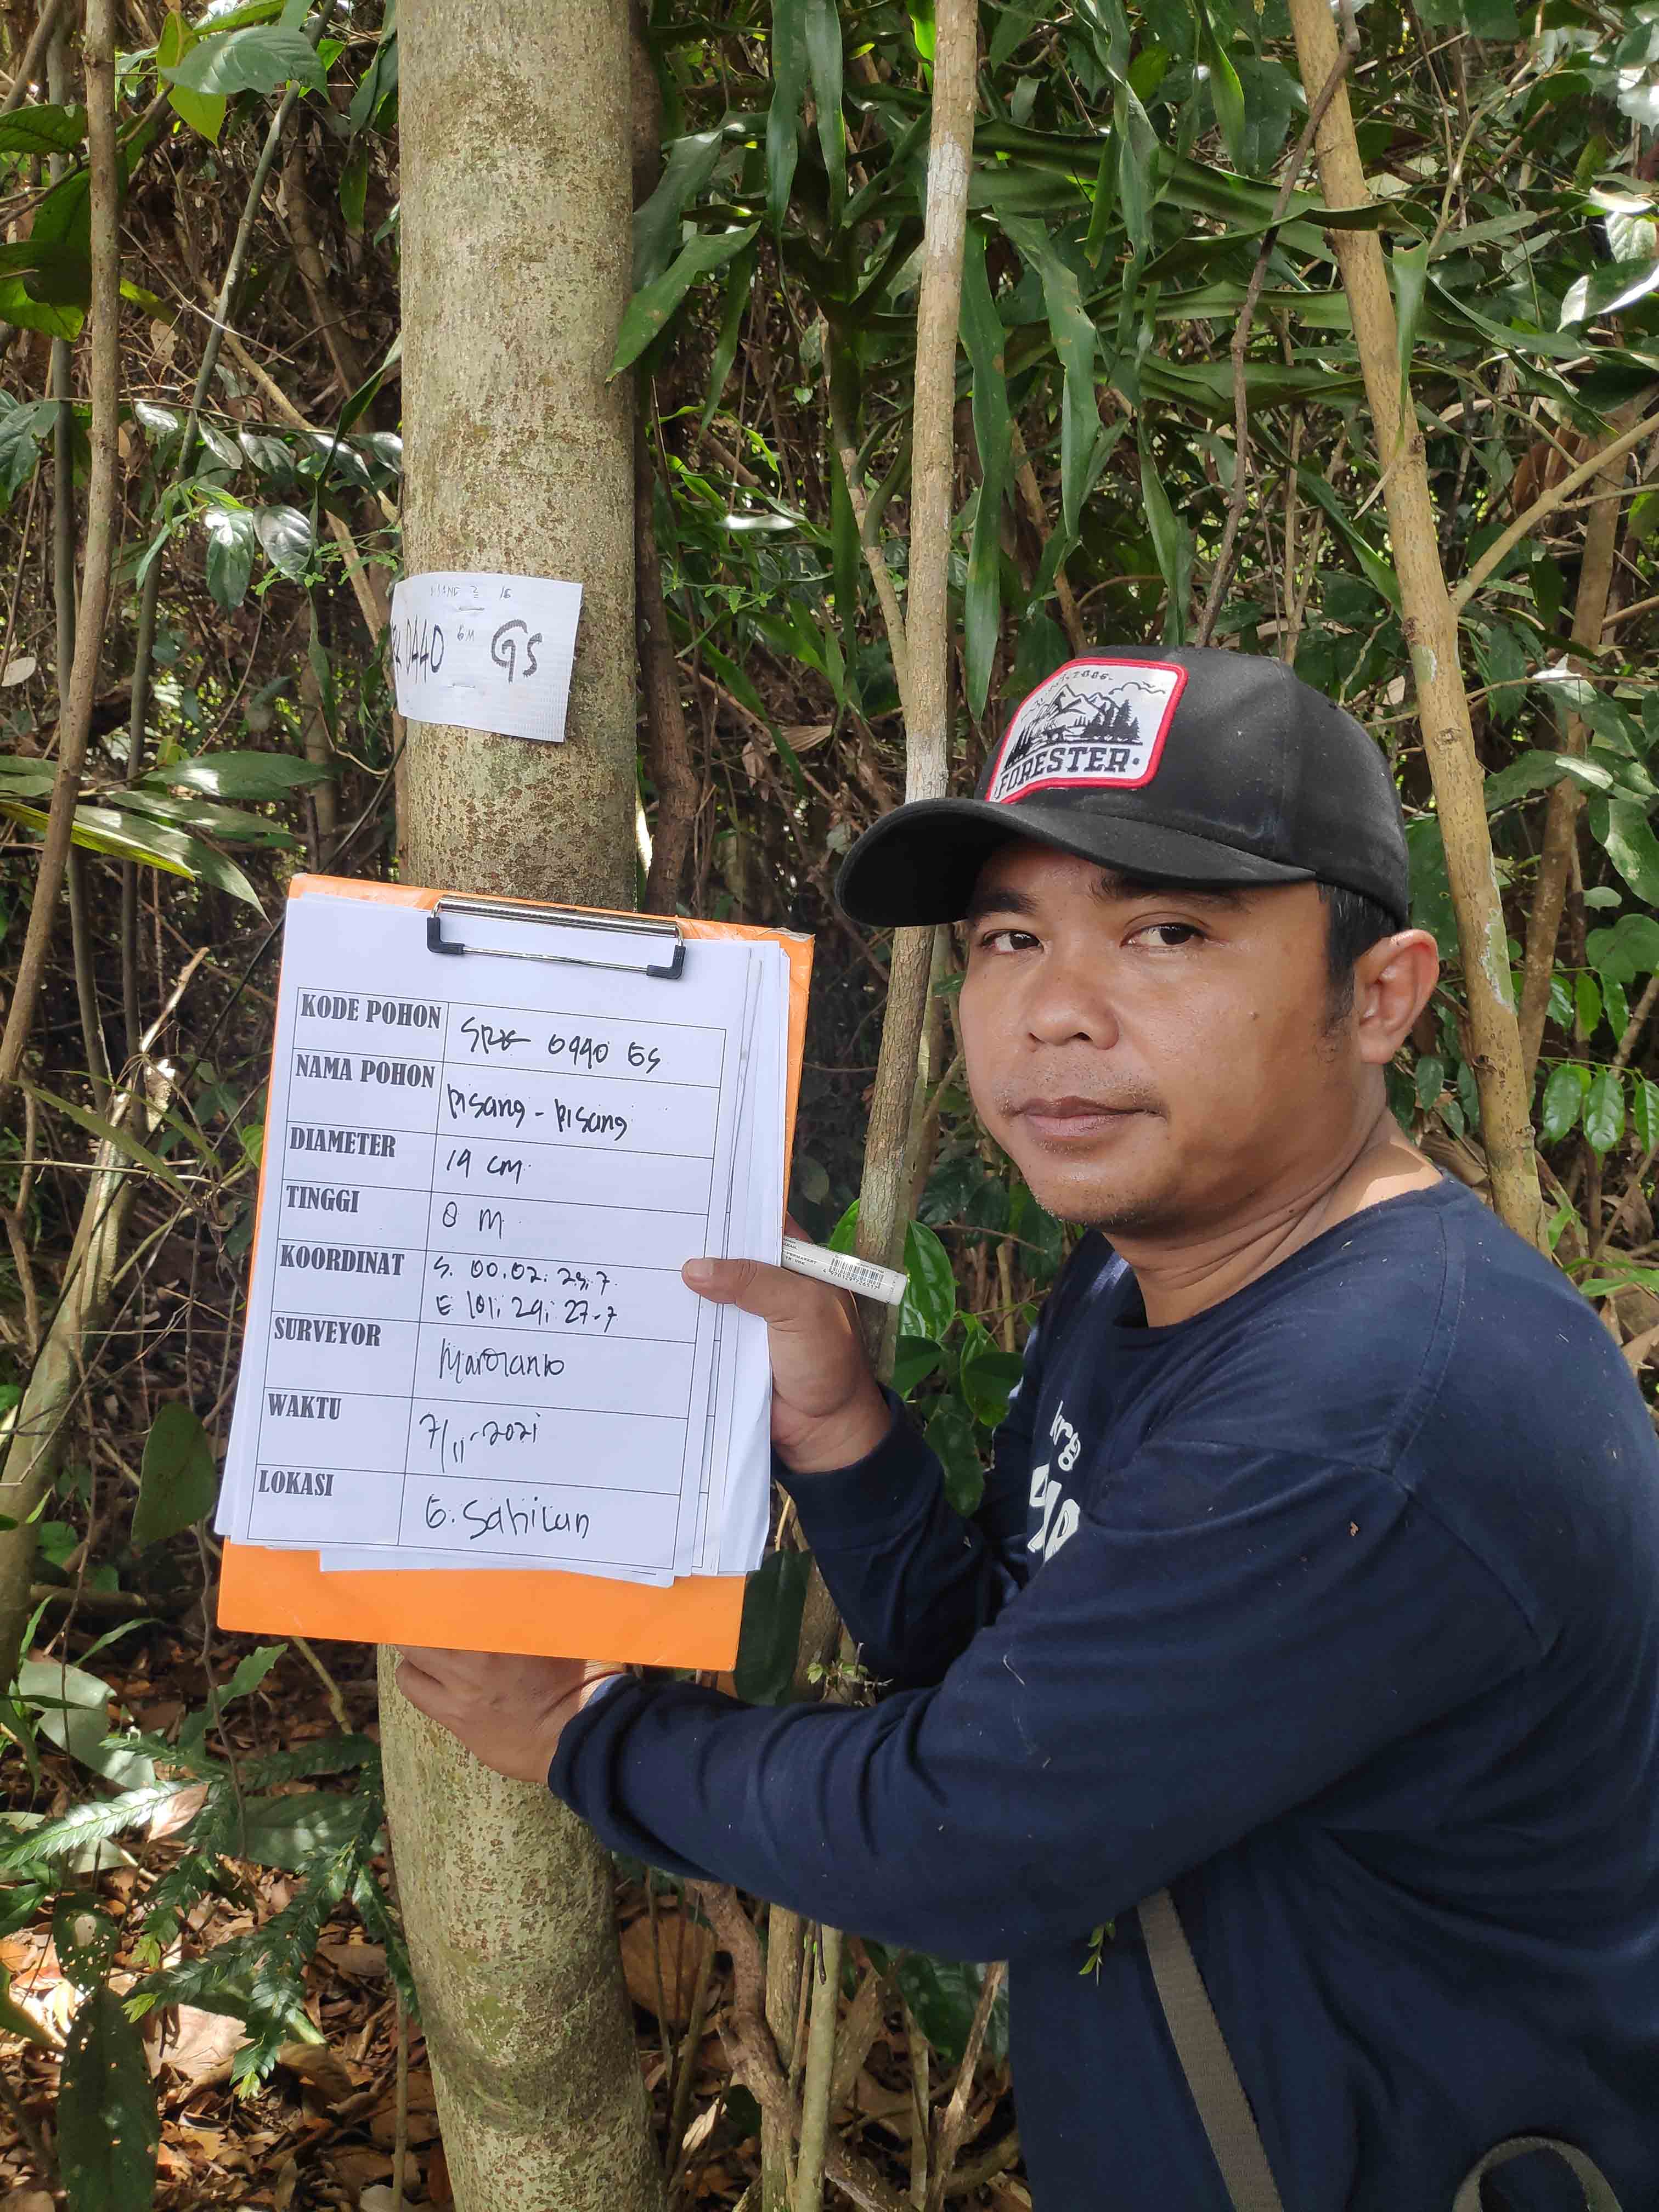 0440 GS
6M
FORESTER
KODE POHON
0440 GS
NAMA POHON pisang - pisang
DIAMETER 19 cm
TINGGI 8 M
KOORDINAT S. 00.02. 29,7
E 101; 29; 27-7
SURVEYOR
WAKTU 7/11-2021
LOKASI G. Sahilan